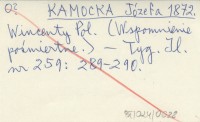 KAMOCKA Józefa 1872.
Wincenty Pol. (Wspomnienie
pośmiertne.) — Tyg. Il.
nr 259: 289-290.